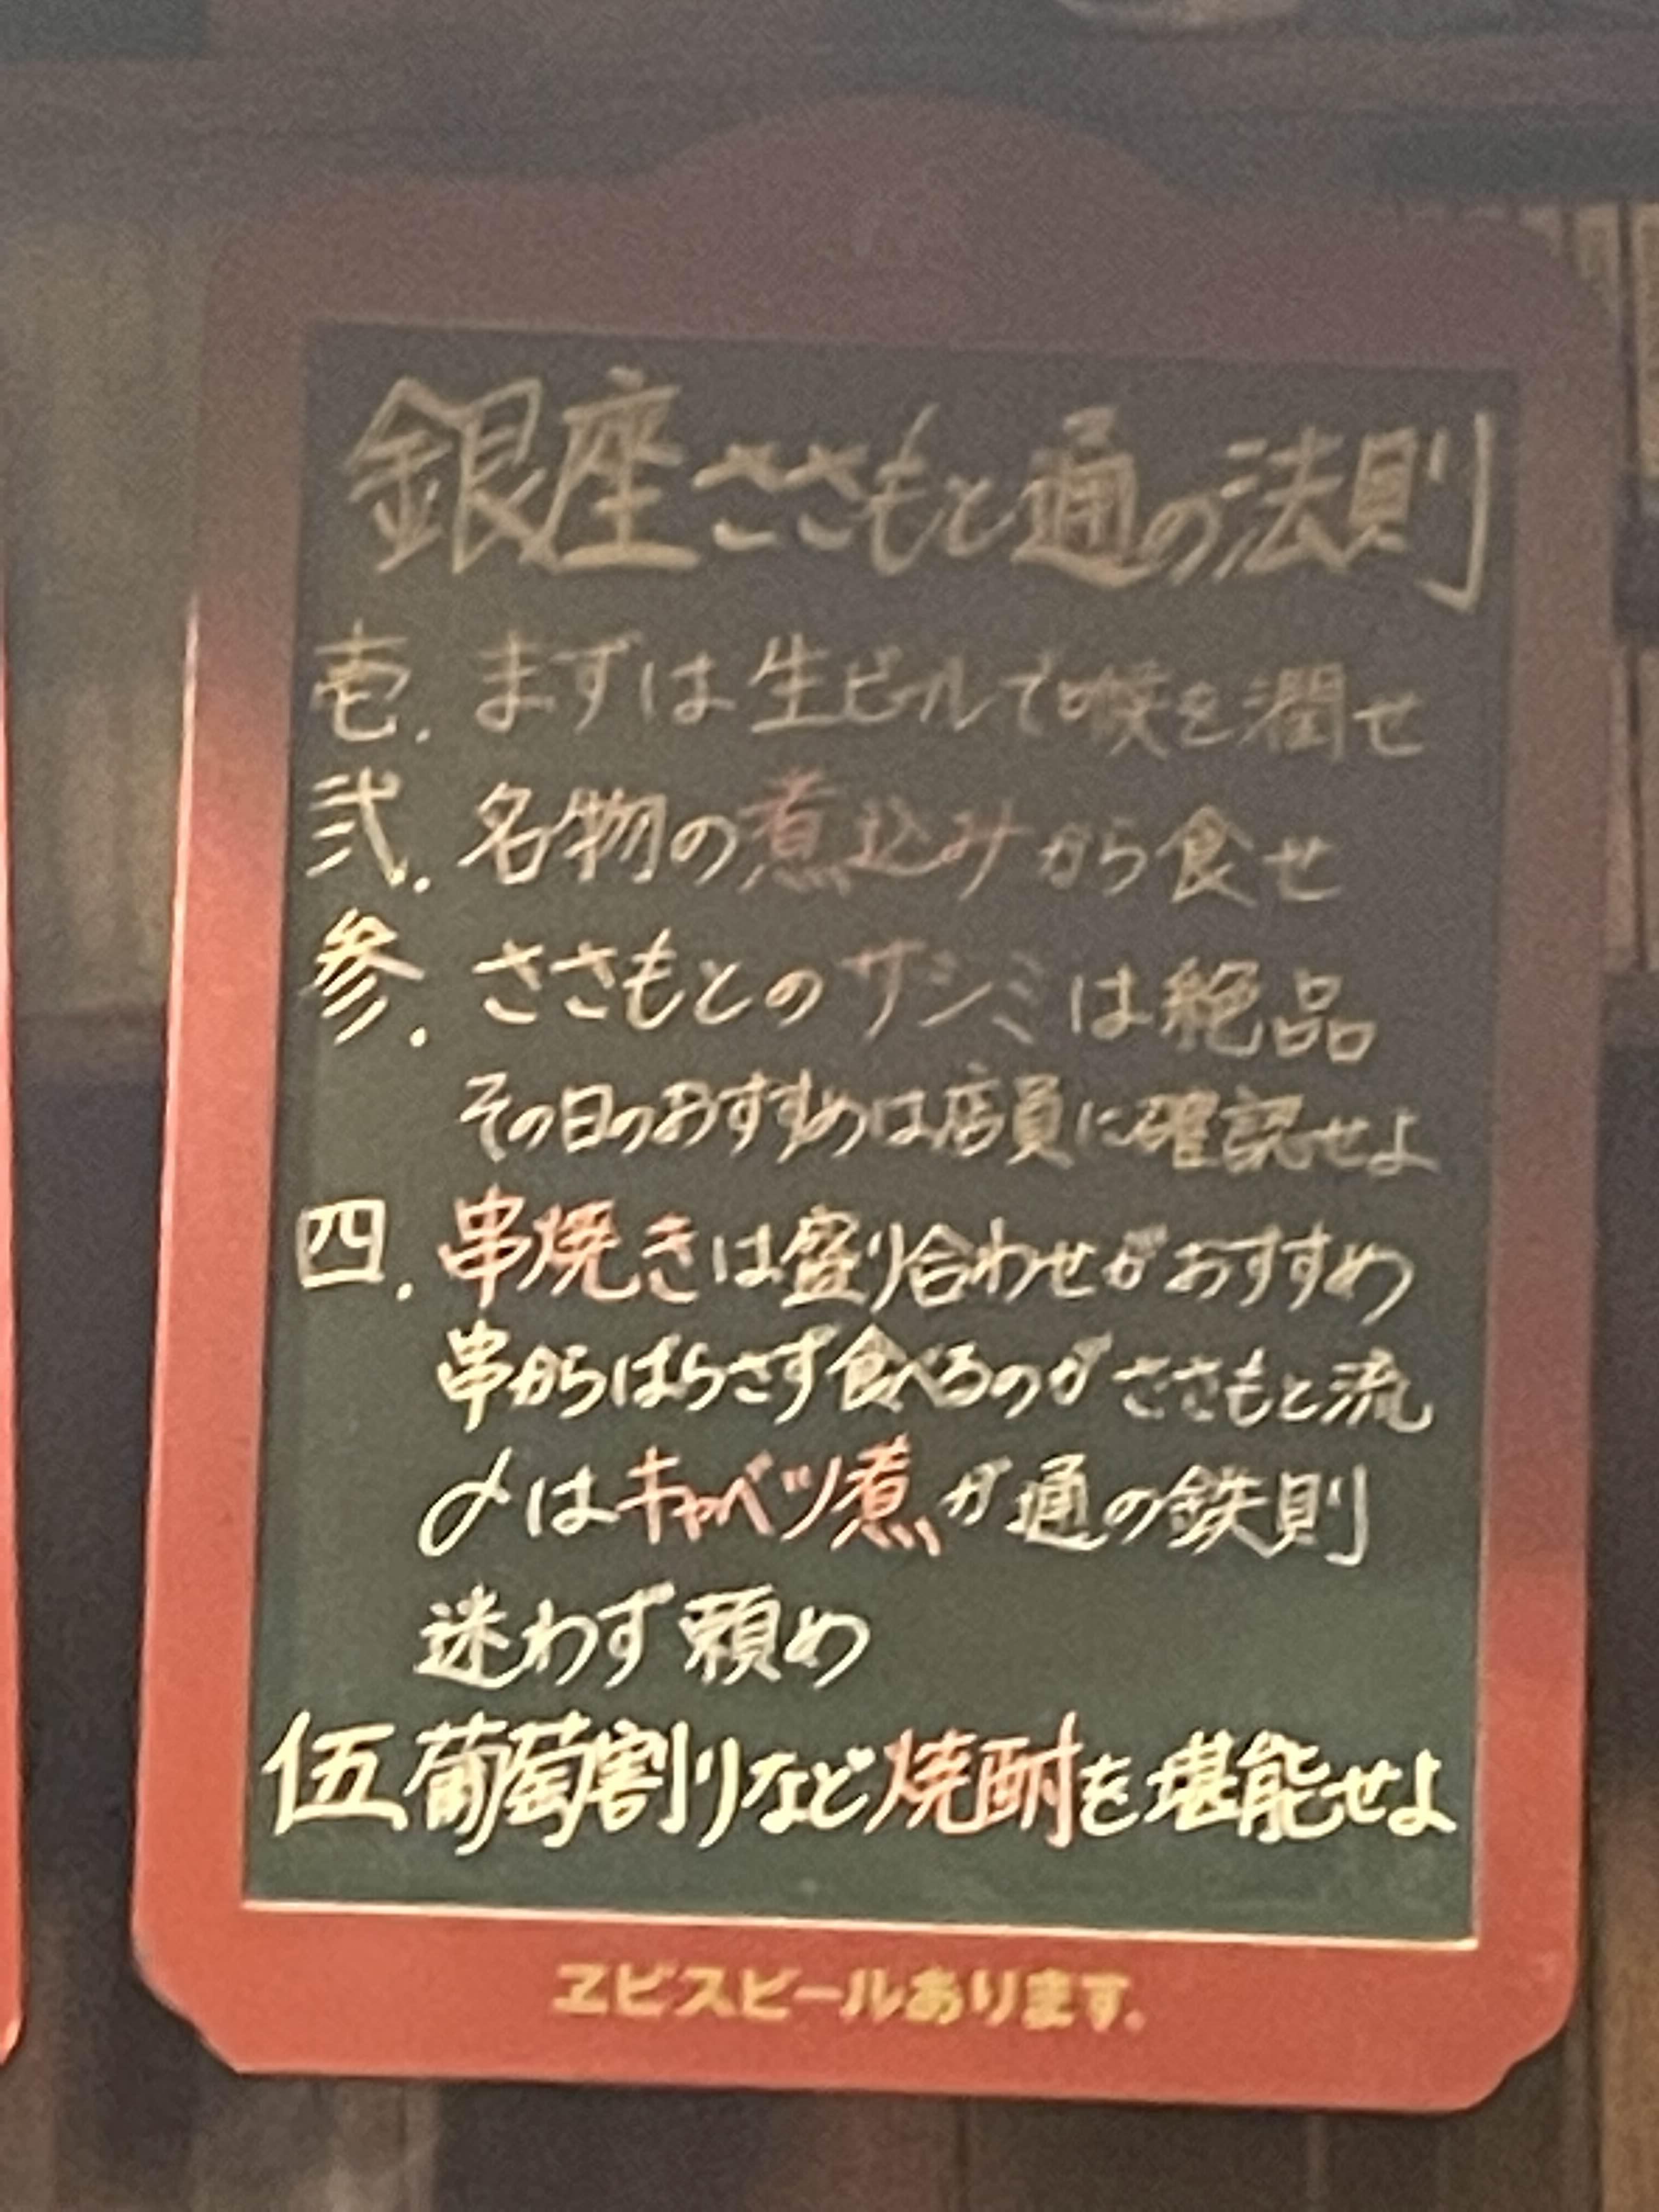 銀座ささもと通の法則
壱. まずは生ビールで喉を潤せ
弐. 名物の煮込みから食せ
参. ささもとのサシミは絶品
その日のおすすめは店員に確認せよ
四. 串焼きは盛り合わせがおすすめ
串からばらさず食べるのがささもと流
〆はキャベツ煮が通の鉄則
迷わず頼め
伍、葡萄割りなど焼酎を堪能せよ
ヱビスビールあります.